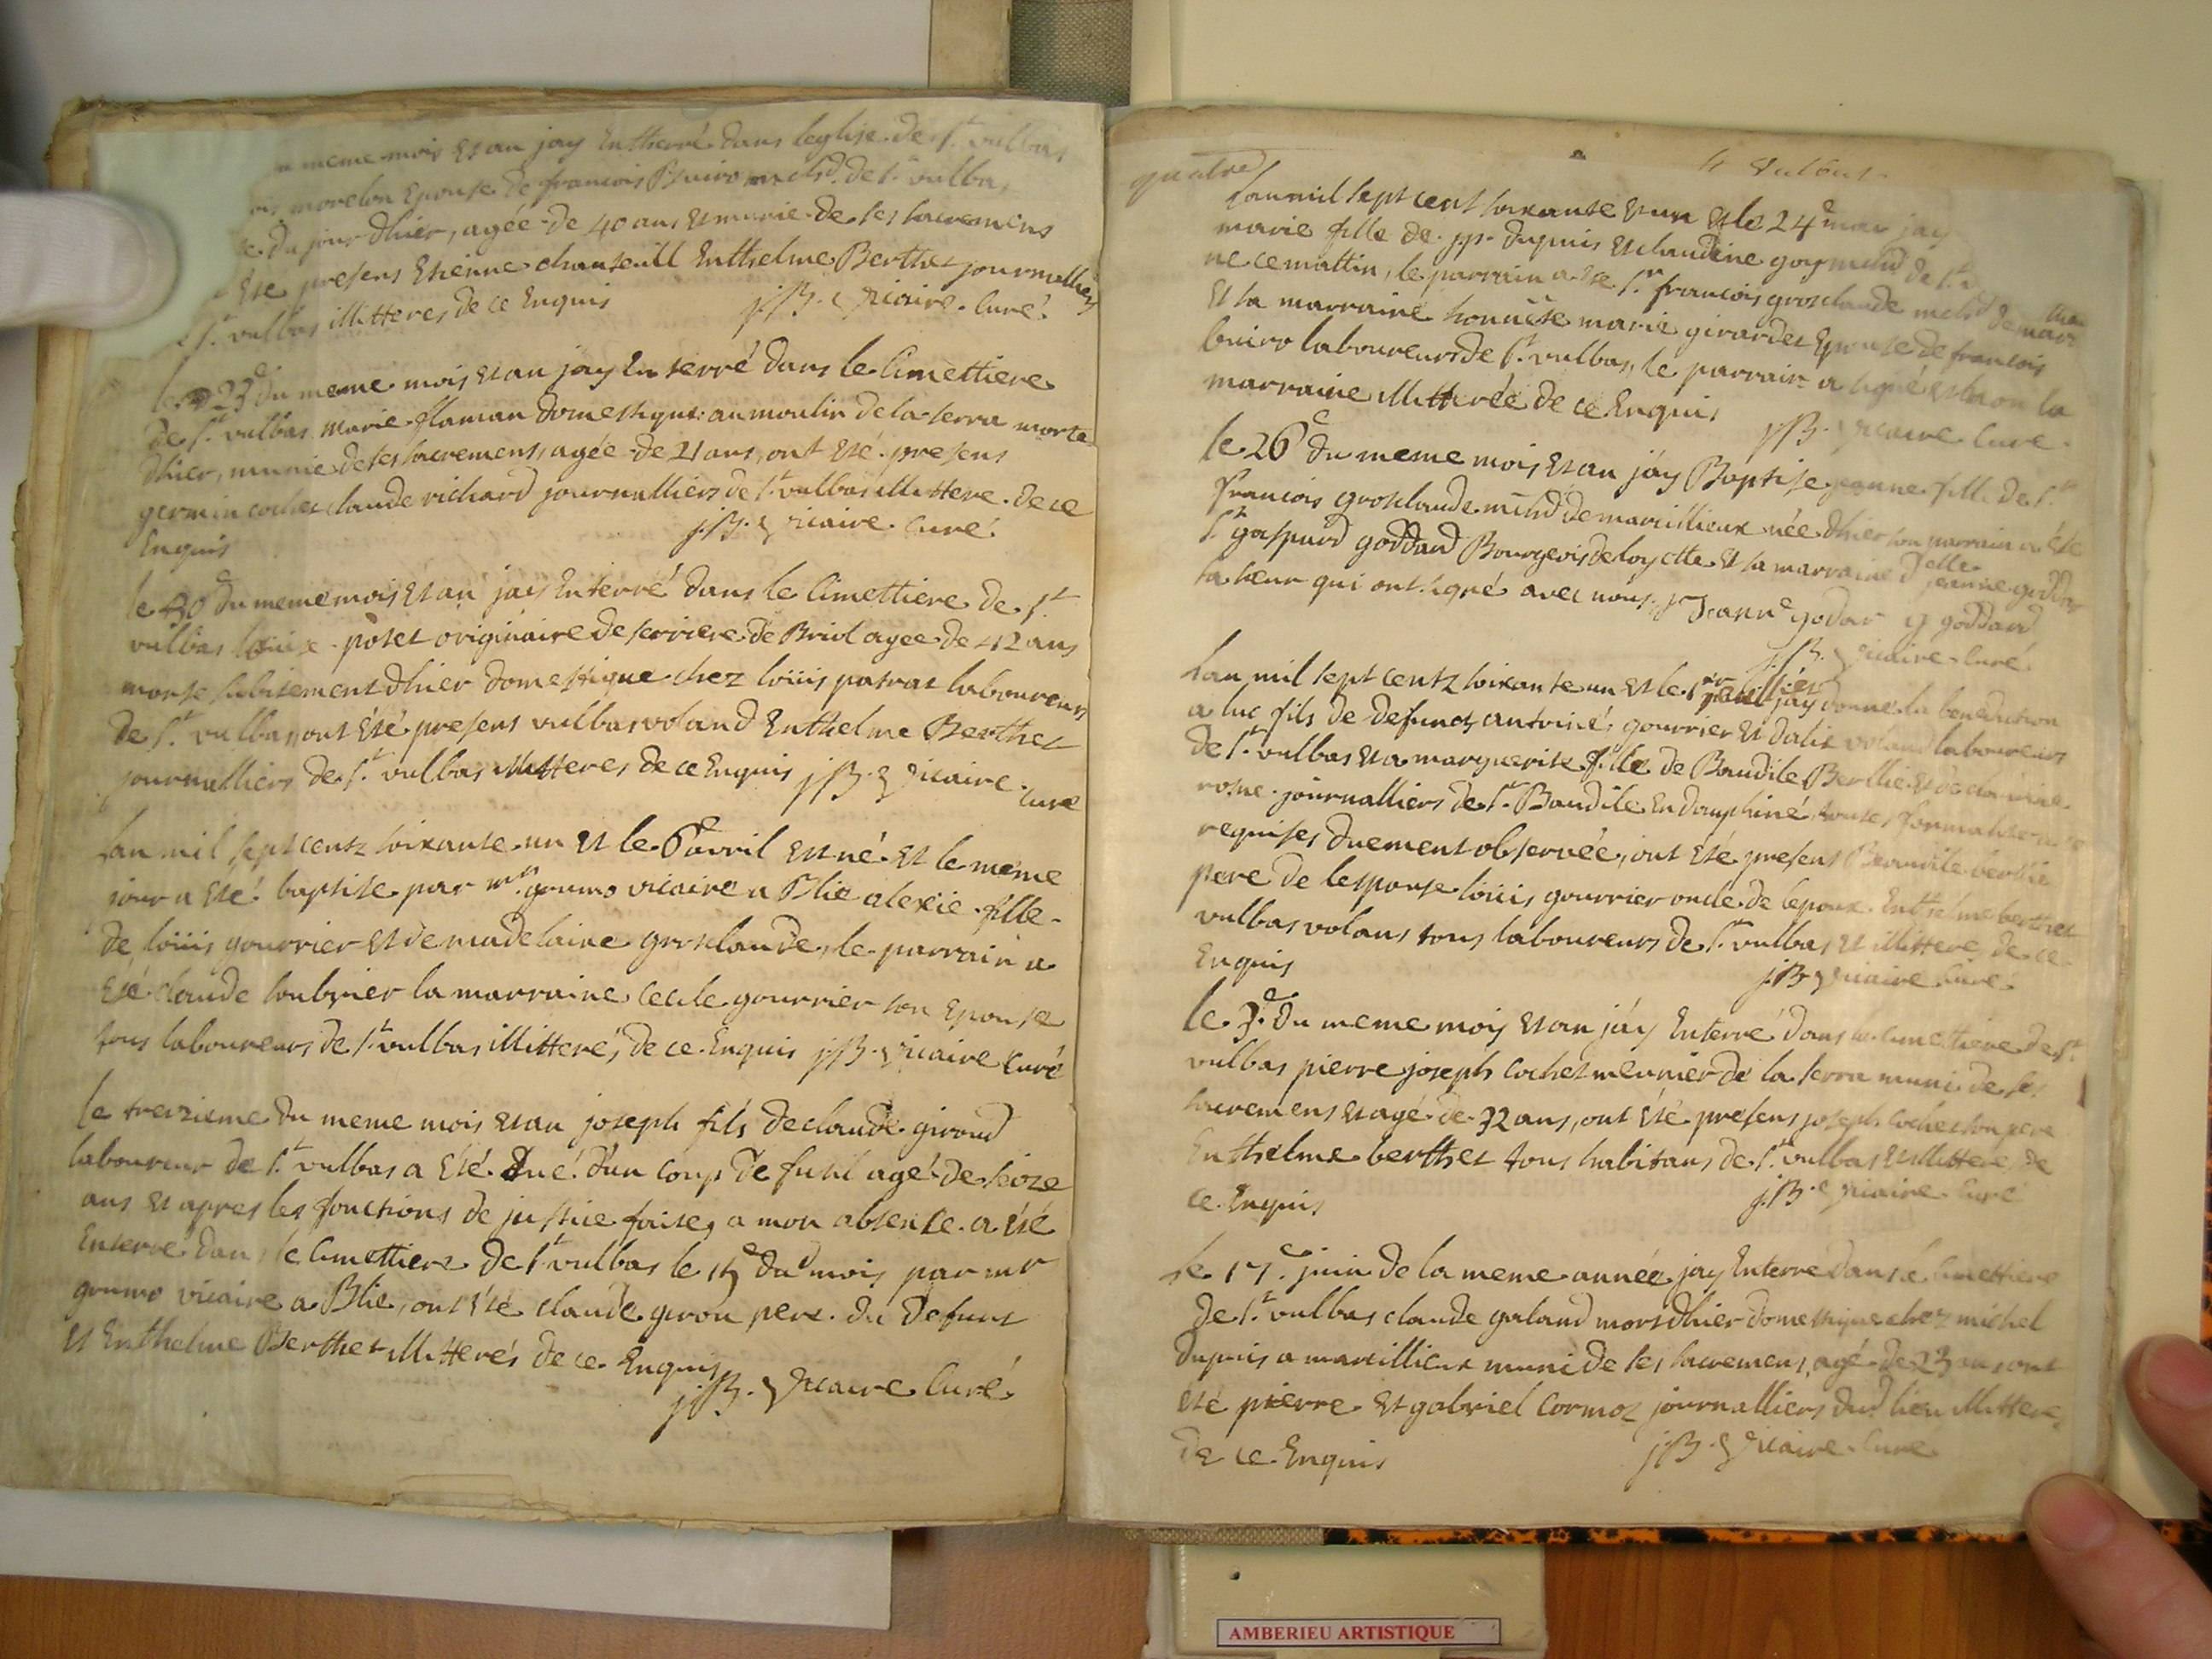 meme mois et an jay Entherré dans leglise de St. vulbas
morelon Epouse de francois Buiro mchd. de St. vulbas
du jour dhier, agée de 40 ans et munie de ses sacremens
Eté presens Etienne chanteull Enthelme Berthet journalliers
St. vulbas illitteres de ce Enquis j.B. vicaire. Curé.
le 23e du meme mois et an jay En terré dans le Cimettiere
de St. vulbas marie flaman domestique au moulin de la serra morte
dhier, munie de ses sacremens, agée de 21 ans, ont Eté presens
germin cochet claude richard journalliers de St. vulbas illittere. de ce
Enquis j.B. vicaire. Curé.
le 30e du meme mois et an jay Enterré dans le Cimettiere de St.
vulbas louise poset originaire de serriere de Briol agee de 42 ans
morte subitement dhier domestique chez loüis patrat laboureurs
de St. vulbas, ont Eté presens vulbas voland Enthelme Berthet
journalliers de St. vulbas illitteres de ce Enquis j.B. vicaire. cure
Lan mil sept centz soixante un et le 6e avril est né et le meme
jour a Eté baptise par mr. grumo vicaire a Blie alexie fille
de loüis gourrier et de madelaine grosclaude, le parrain a
Eté claude loubrier la marraine Cecile gourrier son Epouse
tous laboureurs de St. vulbas illitterés de ce Enquis j.B. vicaire Curé
le treizieme du meme mois et an joseph fils de claude giroud
laboureur de St. vulbas a Eté tué d'un coup de fusil agé de seize
ans et apres les fonctions de justice faites a mon absence a Eté
Enterré dans le Cimettiere de St vulbas le 15e dud mois par mr
grumo vicaire a Blie, ont Eté claude girou pere du Defunt
et Enthelme Berthet illitterés de ce Enquis
j.B. vicaire Curé.
quatre
Lan mil sept cent soixante et un et le 24e mar jay
marie fille de pp. dupuis et claudine goymand de St.
ne ce mattin, le parrain a ete Sr. francois grosclaude mchd de mar
et la marraine honnete marie girardet Epouse de francois
buiro laboureurs de St. vulbas, le parrain a signé et non la
marraine illitterée de ce Enquis j.B. vicaire Cure.
le 26e du meme mois et an jay Baptise jeanne fille de Sr.
francois grosclaude mchd de marcillieux née dhier son parrain a été
Sr gaspard goddard Bourgeois de loyette et la marraine delle jeanne goddar
sa seur qui ont signé avec nous. Jeanne godar g goddard
j.B. vicaire Curé
Lan mil sept centz soixante un et le 1er jay donné la benediction
a luc fils de defunct antoine gourrier et dalix voland laboureurs
de St. vulbas et a marguerite fille de Baudile Berllie et de
rosne journalliers de St. Baudile En dauphiné, toutes formalites
requises duement observée, ont Eté presens Baudile berllie
pere de lespouse loüis gourrier oncle de lepoux. Enthelme berthet
vulbas volans tous laboureurs de St. vulbas et illittere, de ce
Enquis j.B. vicaire Curé
le 3e. du meme mois et an jáy Enterré dans le cimettiere de St.
vulbas pierre joseph cochet meunier de la serra muni de ses
sacremens et agé de 32 ans, ont Eté presens joseph cochet son pere
Enthelme berthet tous habitans de St. vulbas et illittere, de
ce Enquis j.B. vicaire Curé
Le 17e. juin de la meme année jay Enterre dans le Cimettiere
de St. vulbas claude galand mort dhier domestique chez michel
Dupuis a marcillieux muni de ses sacremens, agé de 23 ans ont
eté pierre et gabriel Cormoz journalliers dud lieu illittere,
de ce Enquis j.B. vicaire Cure
AMBERIEU ARTISTIQUE